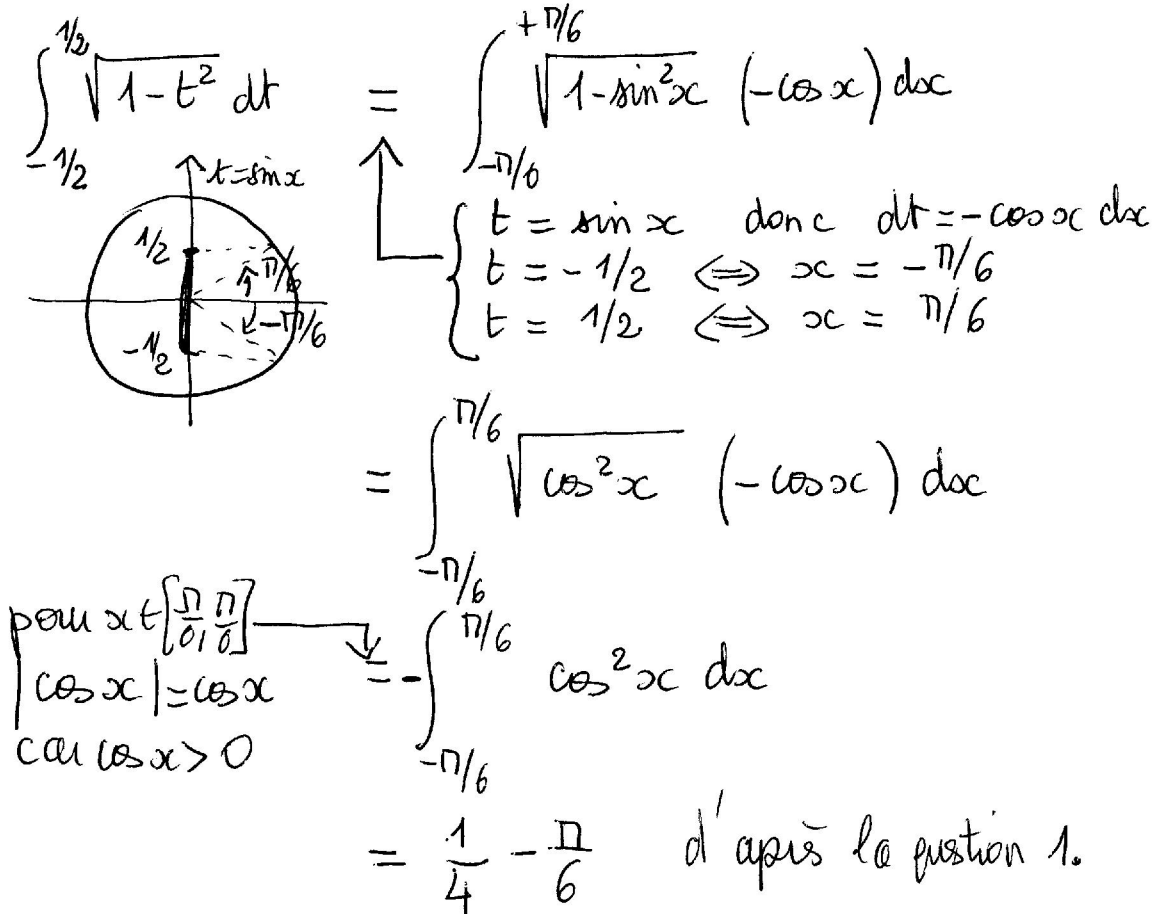 ∫_{-1/2}^{1/2} √(1-t²) dt = ∫_{-π/6}^{+π/6} √(1-sin²x) (-cos x) dx
t = sin x
1/2
π/6
-π/6
-1/2
t = sin x donc dt = -cos x dx
t = -1/2 ⇔ x = -π/6
t = 1/2 ⇔ x = π/6
= ∫_{-π/6}^{π/6} √(cos²x) (-cos x) dx
pour x ∈
|cos x| = cos x
car cos x > 0
= -∫_{-π/6}^{π/6} cos²x dx
= 1/4 - π/6 d'après la question 1.